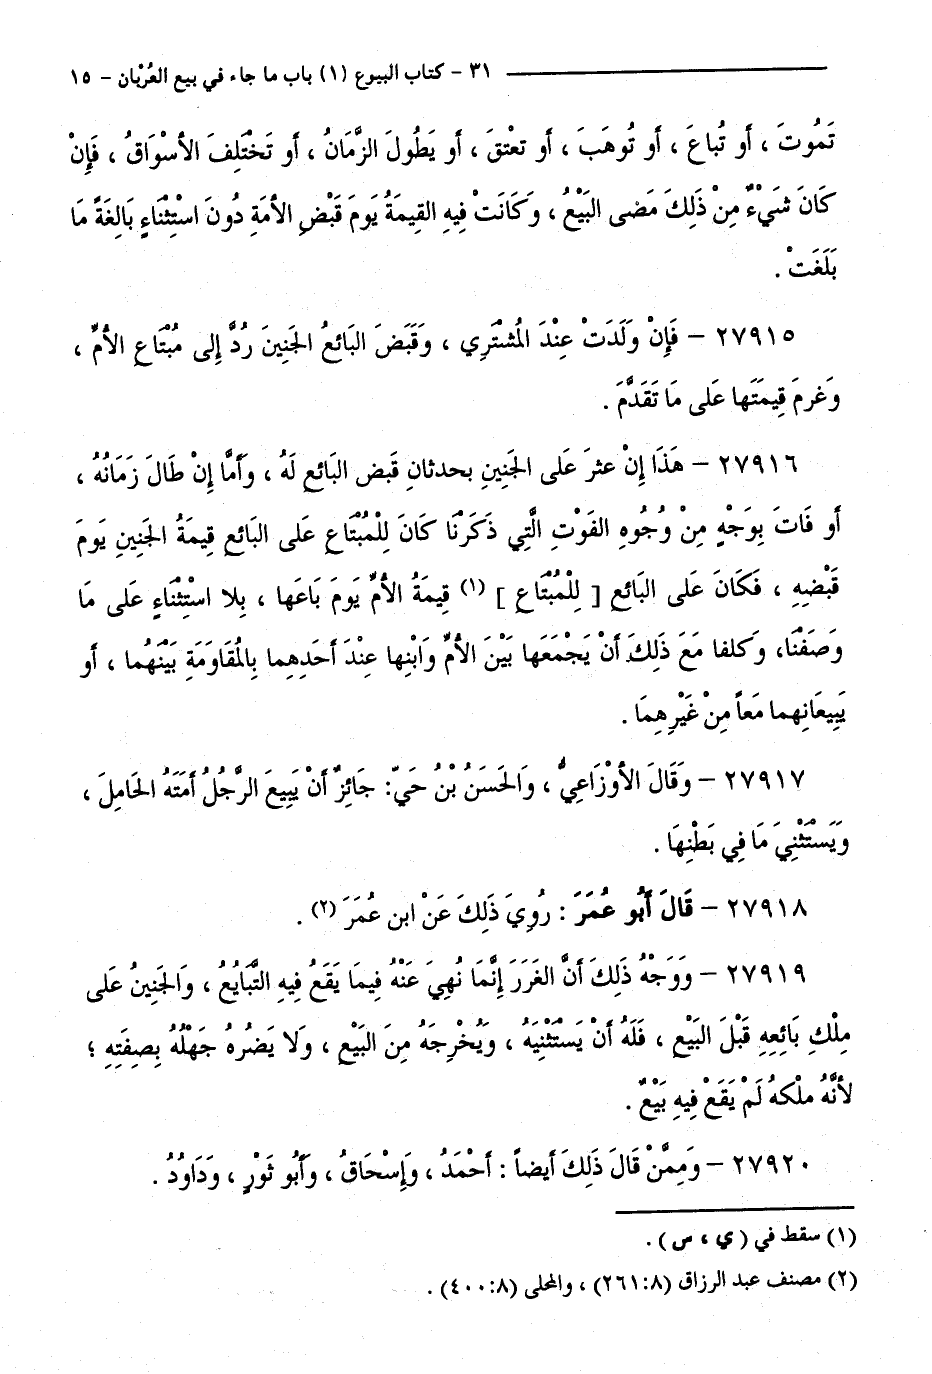 ٣١ - كتاب البيوع (١) باب ما جاء في بيع العُرْبان - ١٥
تَمُوتَ ، أو تُباعَ ، أو تُوهَبَ ، أو تعتْقَ ، أو يَطُولَ الزَّمَانُ ، أو تَختْلِفَ الأسْوَاقُ ، فَإنْ
كَانَ شَيْءٌ مِنْ ذَلِكَ مَضى البَيْعُ ، وكَانَتْ فيِهِ القِيمَةُ يَومَ قَبْضِ الأمَةِ دُونَ اسْتِثْنَاءٍ بَالِغَةً مَا
بَلَغَتْ .
٢٧٩١٥ - فَإنْ ولَدَتْ عِنْدَ المُشْتَرِي ، وقَبَضَ البَائعُ الجَنِينَ رُدَّ إلى مُبْتَاعِ الأُمِّ ،
وغَرمَ قِيمَتَها عَلى مَا تَقَدَّمَ .
٢٧٩١٦ - هَذَا إنْ عثرَ عَلى الجَنِينِ بحدثانِ قَبض البَائعِ لَهُ ، وأمَّا إنْ طَالَ زَمَانُهُ ،
أو فَاتَ بِوَجْهٍ مِنْ وُجُوهِ الفَوْتِ الَّتِي ذَكَرْنَا كَانَ لِلْمُبْتَاعِ عَلى البَائعِ قِيمَةُ الجَنِينِ يَومَ
قَبْضِهِ ، فَكَانَ عَلى البَائعِ [ لِلْمُبْتَاعِ ] (١) قِيمَةُ الأُمِّ يَومَ بَاعَها ، بِلا اسْتِثْنَاءٍ عَلى مَا
وَصَفْنَا، وكلفا مَعَ ذَلِكَ أنْ يَجْمَعَها بَيْنَ الأُمِّ وابْنِها عِنْدَ أحَدِهِما بِالمُقَاوَمَةِ بَيْنَهُما ، أو
يَبِيعَانِهما مَعاً مِنْ غَيْرِهِمَا .
٢٧٩١٧ - وقَالَ الأوْزَاعِيُّ ، والحَسَنُ بْنُ حَيّ: جَائِزٌ أنْ يَبِيعَ الرَّجُلُ أمَتَهُ الحَامِلَ ،
ويَسْتَثْنِيَ مَا فِي بَطْنِهَا .
٢٧٩١٨ - قَالَ أبُو عُمَرَ : رُوِيَ ذَلِكَ عَنْ ابنِ عُمَرَ (٢) .
٢٧٩١٩ - ووَجْهُ ذَلِكَ أنَّ الغَرَرَ إنَّمَا نُهِيَ عَنْهُ فِيمَا يَقَعُ فِيهِ التَّبَايُعُ ، والجَنِينُ عَلى
مِلْكِ بَائِعِهِ قَبْلَ البَيْعِ ، فَلَهُ أنْ يَسْتَثْنِيَهُ ، ويُخْرِجَهُ مِنَ البَيْعِ ، ولا يَضُرهُ جَهْلُهُ بِصِفَتِهِ ؛
لأنَّهُ ملْكهُ لَمْ يَقَعْ فِيهِ بَيْعٌ .
٢٧٩٢٠ - ومِمَّنْ قَالَ ذَلِكَ أيضاً : أحْمَدُ ، وإسْحَاقُ ، وأبُو ثَوْرٍ ، ودَاوُدُ .
(١) سقط في (ي ، س) .
(٢) مصنف عبد الرزاق (٨:٢٦١) ، والمحلى (٨:٤٠٠) .